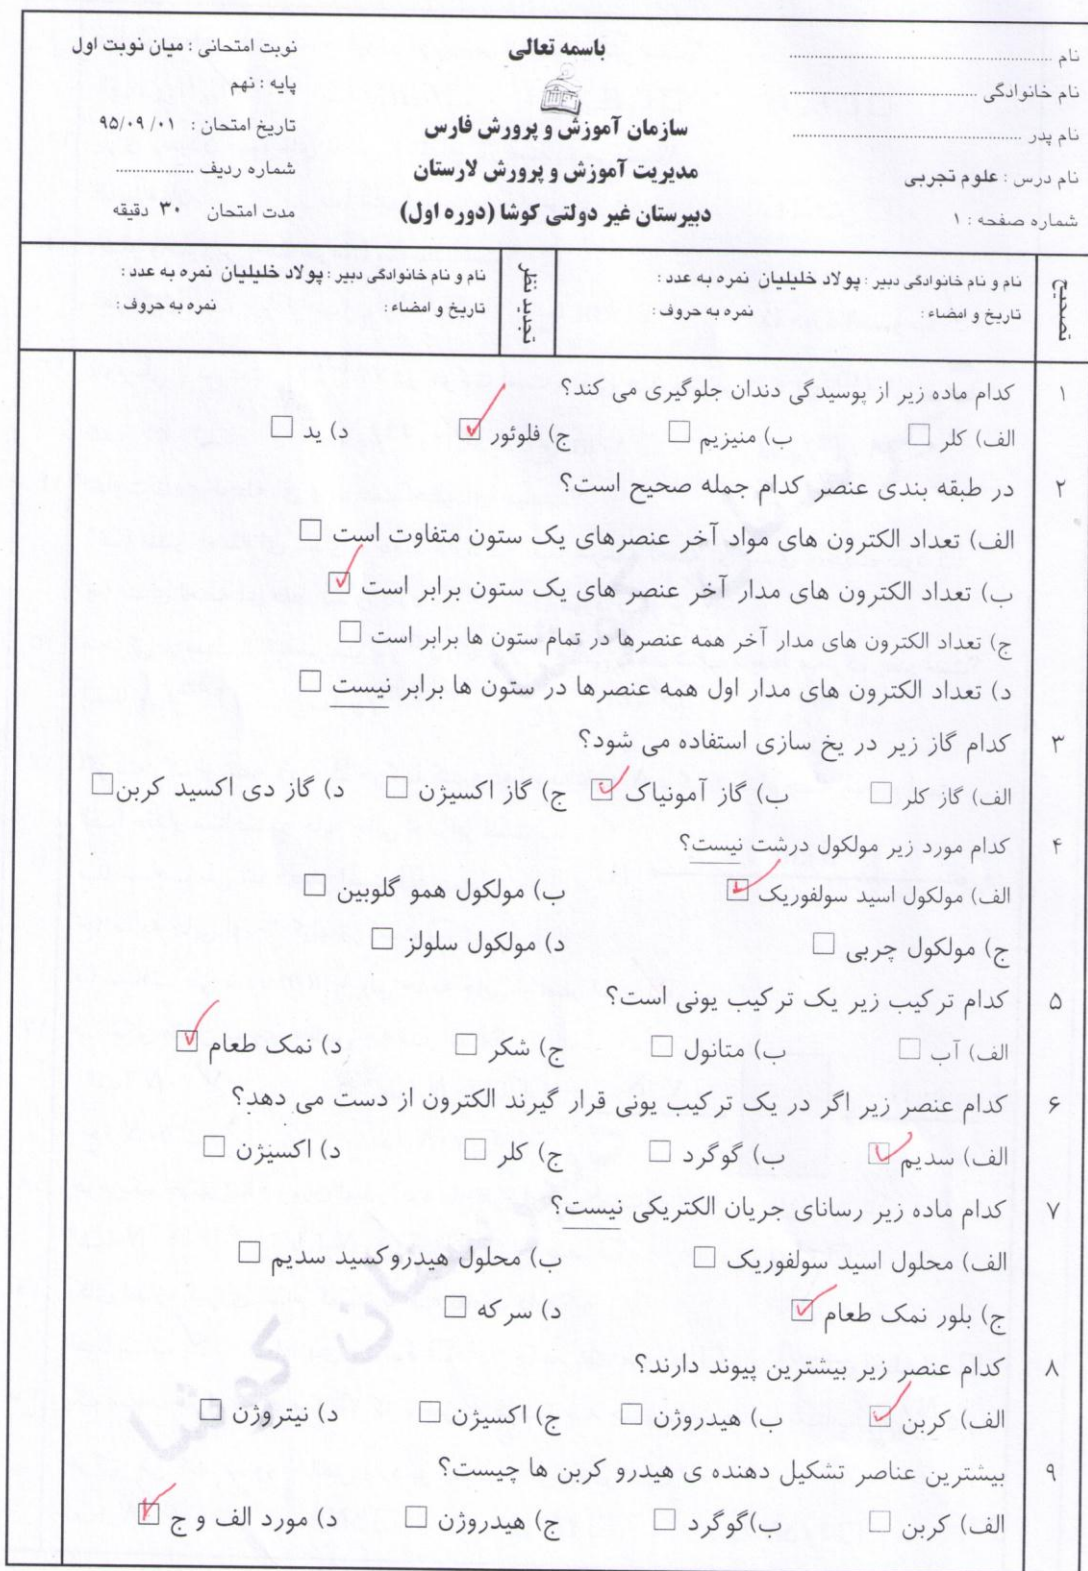 باسمه تعالی
نام ..............................
نام خانوادگی ..............................
نام پدر ..............................
نام درس : علوم تجربی
شماره صفحه : ۱
سازمان آموزش و پرورش فارس
مدیریت آموزش و پرورش لارستان
دبیرستان غیر دولتی کوشا (دوره اول)
نوبت امتحانی : میان نوبت اول
پایه : نهم
تاریخ امتحان : ۹۵/۰۹/۰۱
شماره ردیف ................
مدت امتحان ۳۰ دقیقه
تصحیح
نام و نام خانوادگی دبیر : پولاد خلیلیان نمره به عدد :
تاریخ و امضاء : نمره به حروف :
تجدید نظر
نام و نام خانوادگی دبیر : پولاد خلیلیان نمره به عدد :
تاریخ و امضاء : نمره به حروف :
۱ کدام ماده زیر از پوسیدگی دندان جلوگیری می کند؟
الف) کلر □ ب) منیزیم □ ج) فلوئور ☑ د) ید □
۲ در طبقه بندی عنصر کدام جمله صحیح است؟
الف) تعداد الکترون های مواد آخر عنصرهای یک ستون متفاوت است □
ب) تعداد الکترون های مدار آخر عنصر های یک ستون برابر است ☑
ج) تعداد الکترون های مدار آخر همه عنصرها در تمام ستون ها برابر است □
د) تعداد الکترون های مدار اول همه عنصرها در ستون ها برابر نیست □
۳ کدام گاز زیر در یخ سازی استفاده می شود؟
الف) گاز کلر □ ب) گاز آمونیاک ☑ ج) گاز اکسیژن □ د) گاز دی اکسید کربن□
۴ کدام مورد زیر مولکول درشت نیست؟
الف) مولکول اسید سولفوریک ☑ ب) مولکول همو گلوبین □
ج) مولکول چربی □ د) مولکول سلولز □
۵ کدام ترکیب زیر یک ترکیب یونی است؟
الف) آب □ ب) متانول □ ج) شکر □ د) نمک طعام ☑
۶ کدام عنصر زیر اگر در یک ترکیب یونی قرار گیرند الکترون از دست می دهد؟
الف) سدیم ☑ ب) گوگرد □ ج) کلر □ د) اکسیژن □
۷ کدام ماده زیر رسانای جریان الکتریکی نیست؟
الف) محلول اسید سولفوریک □ ب) محلول هیدروکسید سدیم □
ج) بلور نمک طعام ☑ د) سرکه □
۸ کدام عنصر زیر بیشترین پیوند دارند؟
الف) کربن ☑ ب) هیدروژن □ ج) اکسیژن □ د) نیتروژن □
۹ بیشترین عناصر تشکیل دهنده ی هیدرو کربن ها چیست؟
الف) کربن □ ب)گوگرد □ ج) هیدروژن □ د) مورد الف و ج ☑